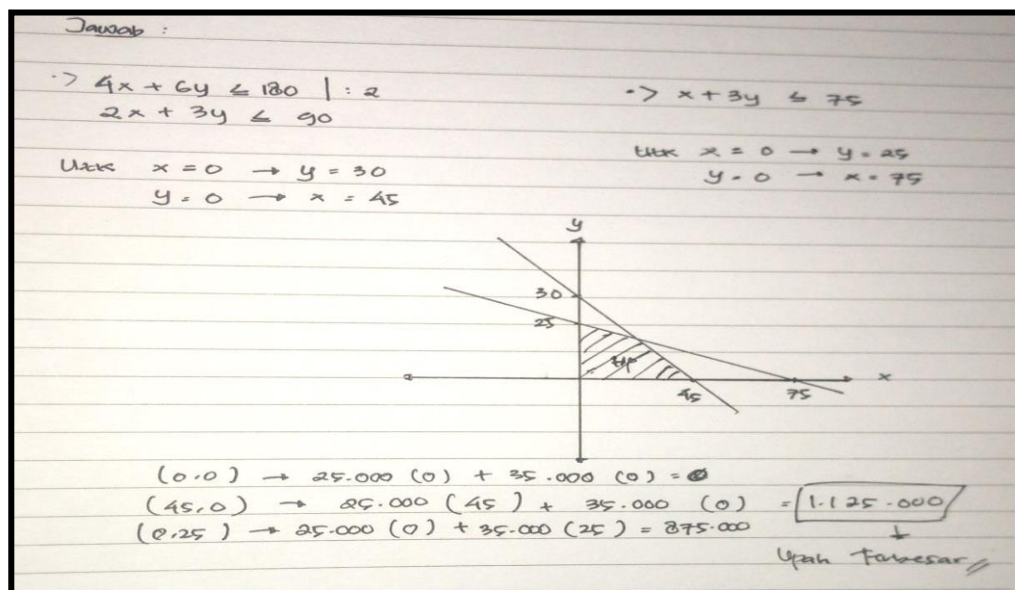 Jawab :
·> 4x + 6y ≤ 180 | : 2
2x + 3y ≤ 90
Utk x = 0 → y = 30
y = 0 → x = 45
·> x + 3y ≤ 75
Utk x = 0 → y = 25
y = 0 → x = 75
y
30
25
HP
45
75
x
(0,0) → 25.000 (0) + 35.000 (0) = 0
(45,0) → 25.000 (45) + 35.000 (0) = 1.125.000
(0,25) → 25.000 (0) + 35.000 (25) = 875.000
Upah Terbesar //